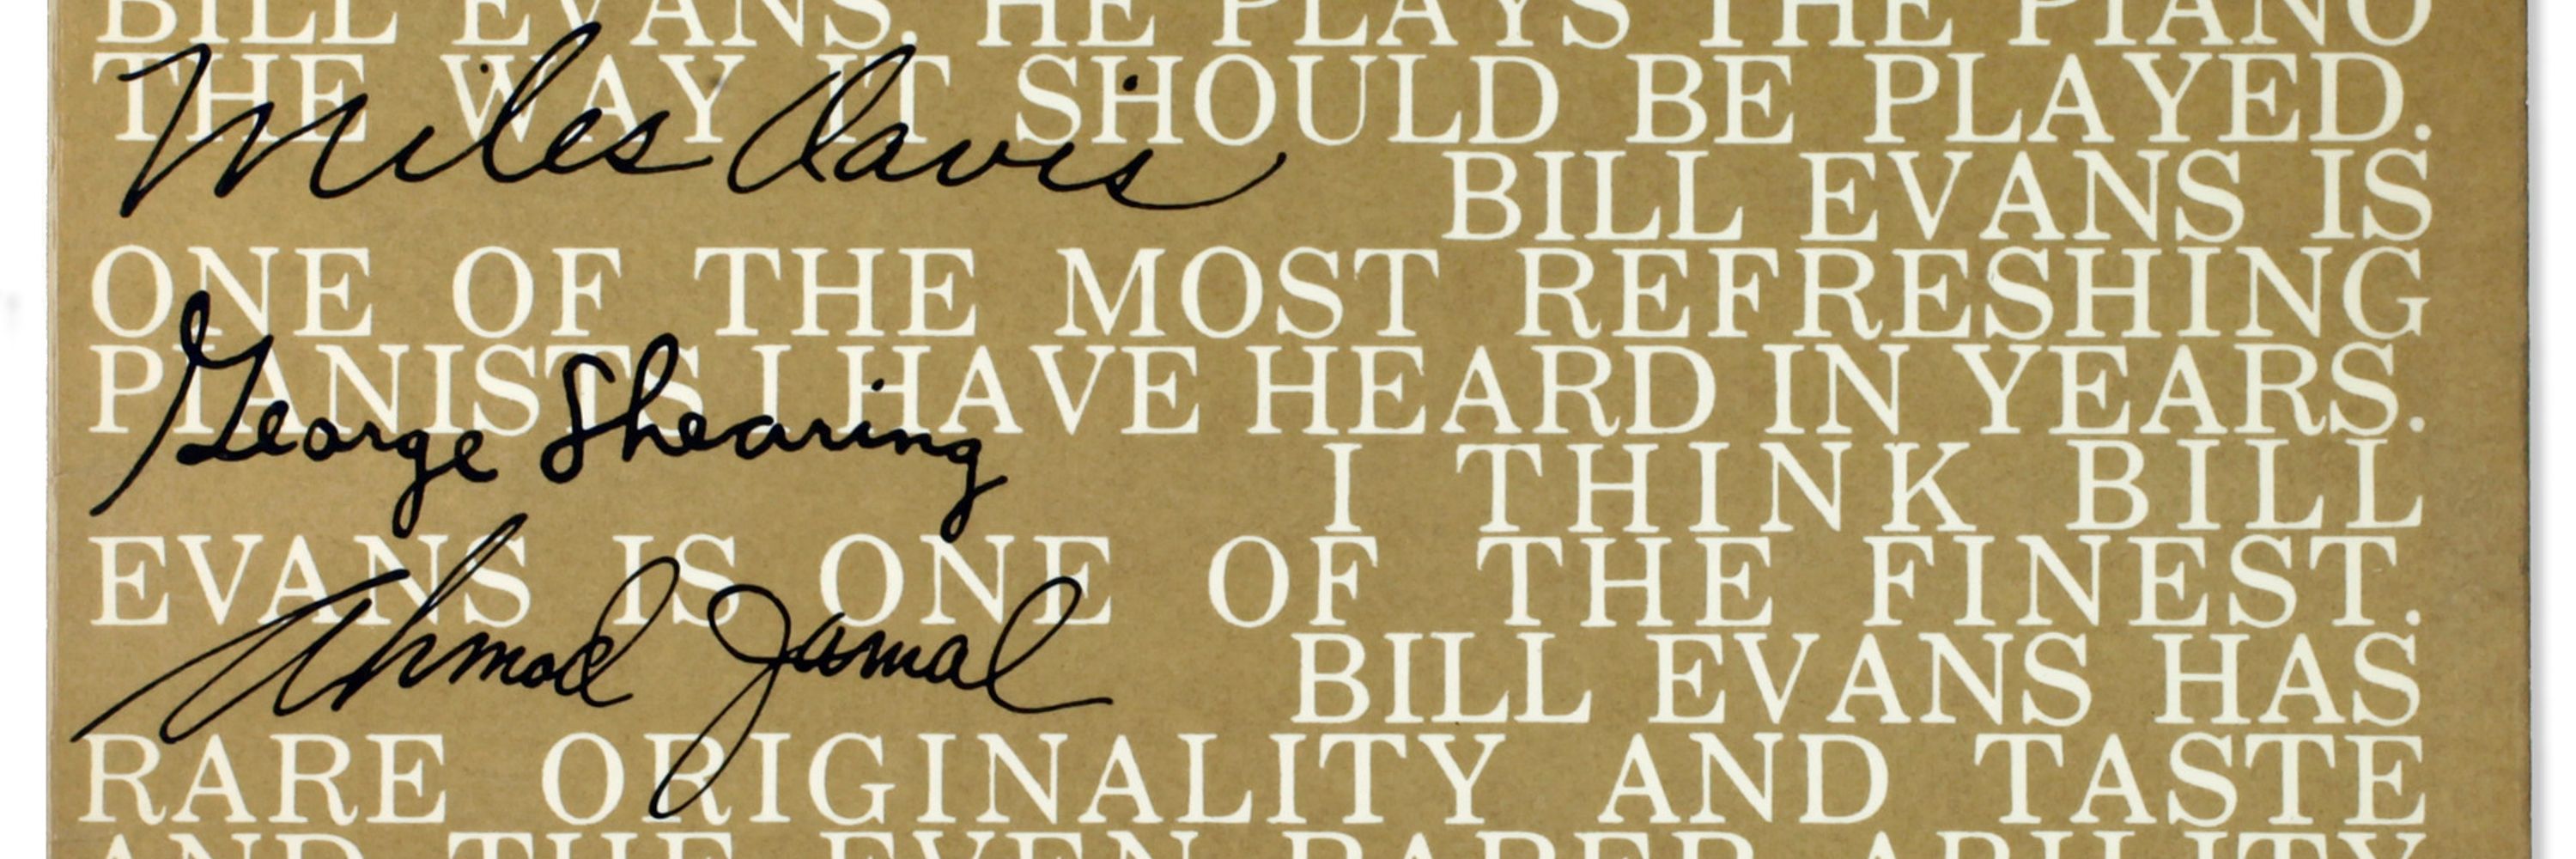 BILL EVANS. HE PLAYS THE PIANO
THE WAY IT SHOULD BE PLAYED.
Miles Davis
BILL EVANS IS
ONE OF THE MOST REFRESHING
PIANISTS I HAVE HEARD IN YEARS.
George Shearing
I THINK BILL
EVANS IS ONE OF THE FINEST.
Ahmad Jamal
BILL EVANS HAS
RARE ORIGINALITY AND TASTE
AND THE EVEN RARER ABILITY